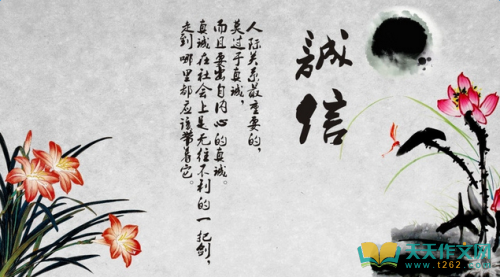 誠信
人际关系最重要的，
莫过于真诚，
而且要出自内心的真诚。
真诚在社会上是无往不利的一把剑
走到哪里都应该带着它。
天天作文网
www.t262.com